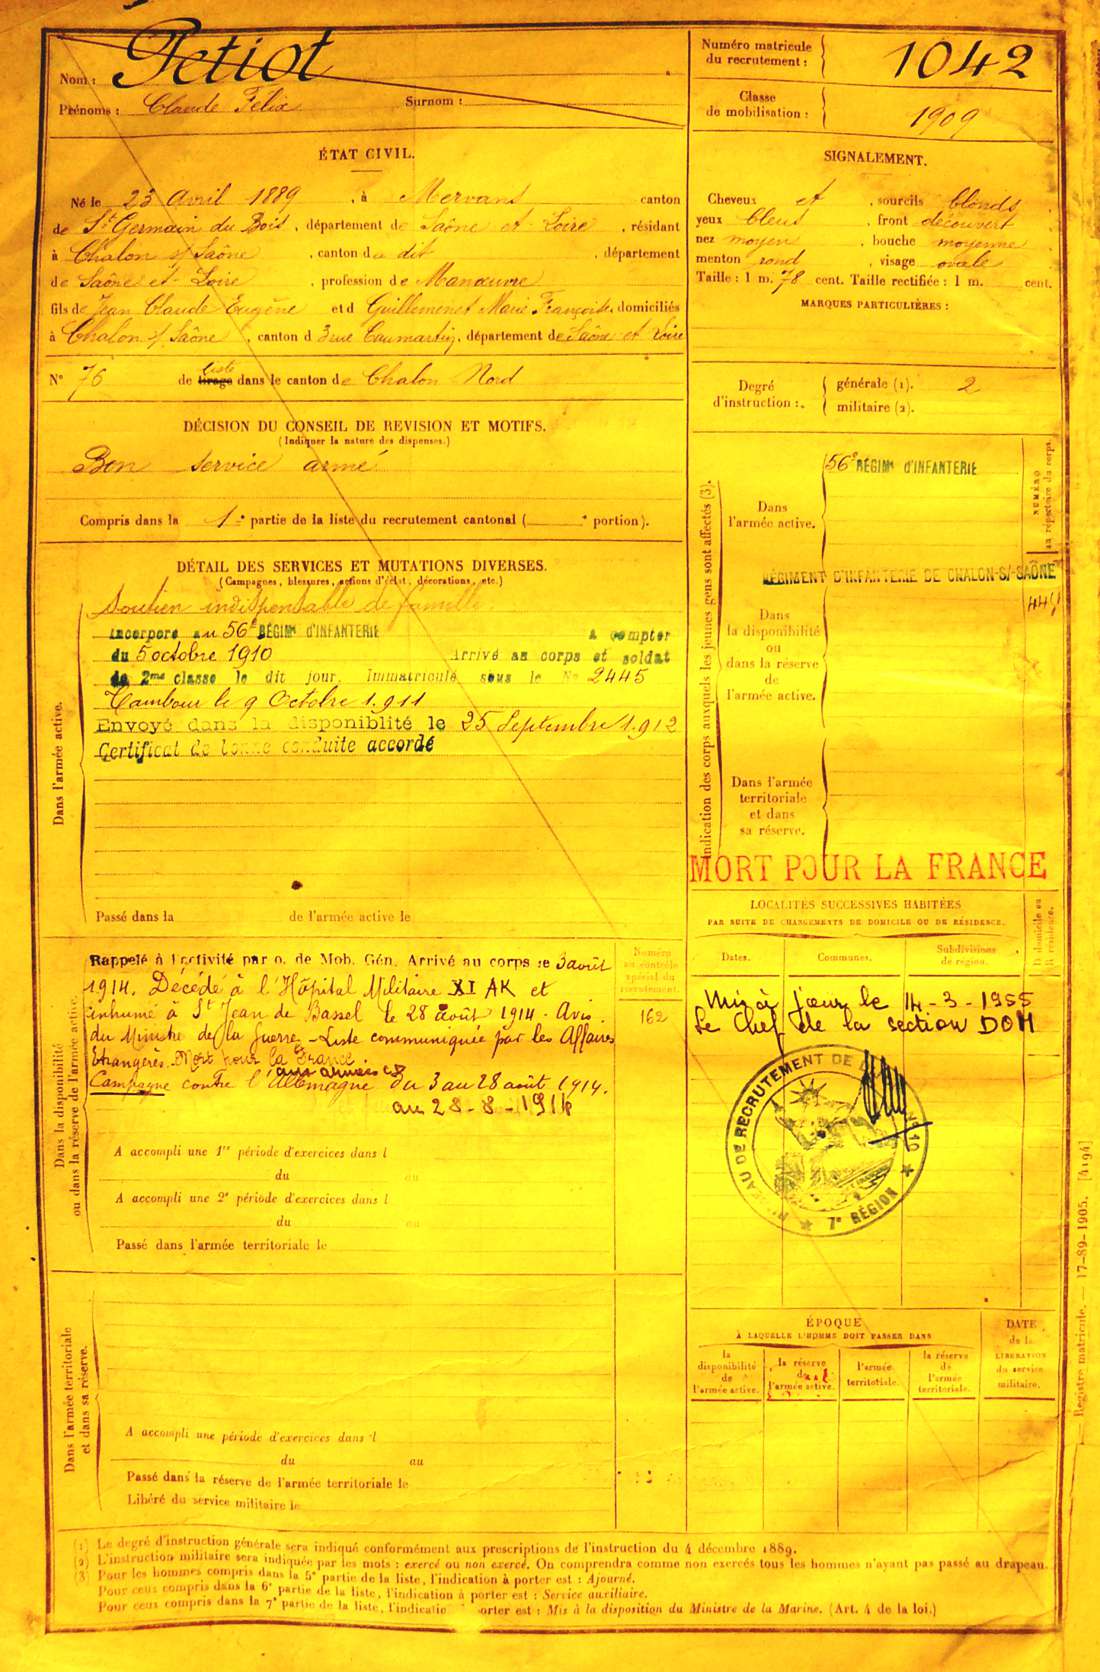 Nom : Petiot
Prénoms : Claude Félix Surnom :
Numéro matricule du recrutement : 1042
Classe de mobilisation : 1909
ÉTAT CIVIL.
Né le 23 Avril 1889, à Mervans canton
de St Germain du Bois, département de Saône et Loire, résidant
à Chalon s/ Saône, canton du dit, département
de Saône et Loire, profession de Manœuvre
fils de Jean Claude Eugène et d Guillemenet Marie Françoise, domiciliés
à Chalon s/ Saône, canton d 3 rue Caumartin, département de Saône et Loire
N° 76 de tirage liste dans le canton de Chalon Nord
SIGNALEMENT.
Cheveux et, sourcils blonds
yeux bleus, front découvert
nez moyen, bouche moyenne
menton rond, visage ovale
Taille : 1 m. 78 cent. Taille rectifiée : 1 m. cent.
MARQUES PARTICULIÈRES :
Degré d'instruction :. générale (1). 2
militaire (2).
DÉCISION DU CONSEIL DE REVISION ET MOTIFS.
(Indiquer la nature des dispenses.)
Bon service armé
Compris dans la 1e partie de la liste du recrutement cantonal ( e portion).
DÉTAIL DES SERVICES ET MUTATIONS DIVERSES.
(Campagnes, blessures, actions d'éclat, décorations, etc.)
Dans l'armée active.
Soutien indispensable de famille.
Incorporé au 56e RÉGIMt D'INFANTERIE à compter
du 5 octobre 1910 Arrivé au corps et soldat
de 2me classe le dit jour. Immatriculé sous le No 2445
Tambour le 9 Octobre 1911
Envoyé dans la disponiblité le 25 Septembre 1912
Certificat de bonne conduite accordé
Passé dans la de l'armée active le
Indication des corps auxquels les jeunes gens sont affectés (3).
NUMÉRO au répertoire du corps.
Dans l'armée active.
56e RÉGIMt D'INFANTERIE
RÉGIMENT D'INFANTERIE DE CHALON-S/-SAÔNE
Dans la disponibilité ou dans la réserve de l'armée active.
Dans l'armée territoriale et dans sa réserve.
MORT POUR LA FRANCE
LOCALITÉS SUCCESSIVES HABITÉES
PAR SUITE DE CHANGEMENTS DE DOMICILE OU DE RÉSIDENCE.
Dates. Communes. Subdivisions de région. D domicile ou R résidence.
Mis à jour le 14-3-1955
Le Chef de la section DOM
BUREAU DE RECRUTEMENT DE
N° 10
7e RÉGION
Dans la disponibilité
ou dans la réserve de l'armée active.
Numéro au contrôle spécial du recrutement.
162
Rappelé à l'activité par o. de Mob. Gén. Arrivé au corps le 3 août
1914. Décédé à l'Hôpital Militaire XI AK et
inhumé à St Jean de Bassel le 28 août 1914. Avis
du Ministre de la Guerre. Liste communiquée par les Affaires
Étrangères. Mort pour la France
aux armées
Campagne contre l'Allemagne du 3 au 28 août 1914.
au 28-8-1914
A accompli une 1re période d'exercices dans l
du au
A accompli une 2e période d'exercices dans l
du au
Passé dans l'armée territoriale le
Dans l'armée territoriale
et dans sa réserve.
A accompli une période d'exercices dans l
du au
Passé dans la réserve de l'armée territoriale le
Libéré du service militaire le
ÉPOQUE
À LAQUELLE L'HOMME DOIT PASSER DANS
la disponibilité de l'armée active.
la réserve de l'armée active.
l'armée territoriale.
la réserve de l'armée territoriale.
DATE de la LIBÉRATION du service militaire.
(1) Le degré d'instruction générale sera indiqué conformément aux prescriptions de l'instruction du 4 décembre 1889.
(2) L'instruction militaire sera indiquée par les mots : exercé ou non exercé. On comprendra comme non exercés tous les hommes n'ayant pas passé au drapeau.
(3) Pour les hommes compris dans la 5e partie de la liste, l'indication à porter est : Ajourné.
Pour ceux compris dans la 6e partie de la liste, l'indication à porter est : Service auxiliaire.
Pour ceux compris dans la 7e partie de la liste, l'indicatio orter est : Mis à la disposition du Ministre de la Marine. (Art. 4 de la loi.)
Registre matricule. — 17-89-1905. [4194]